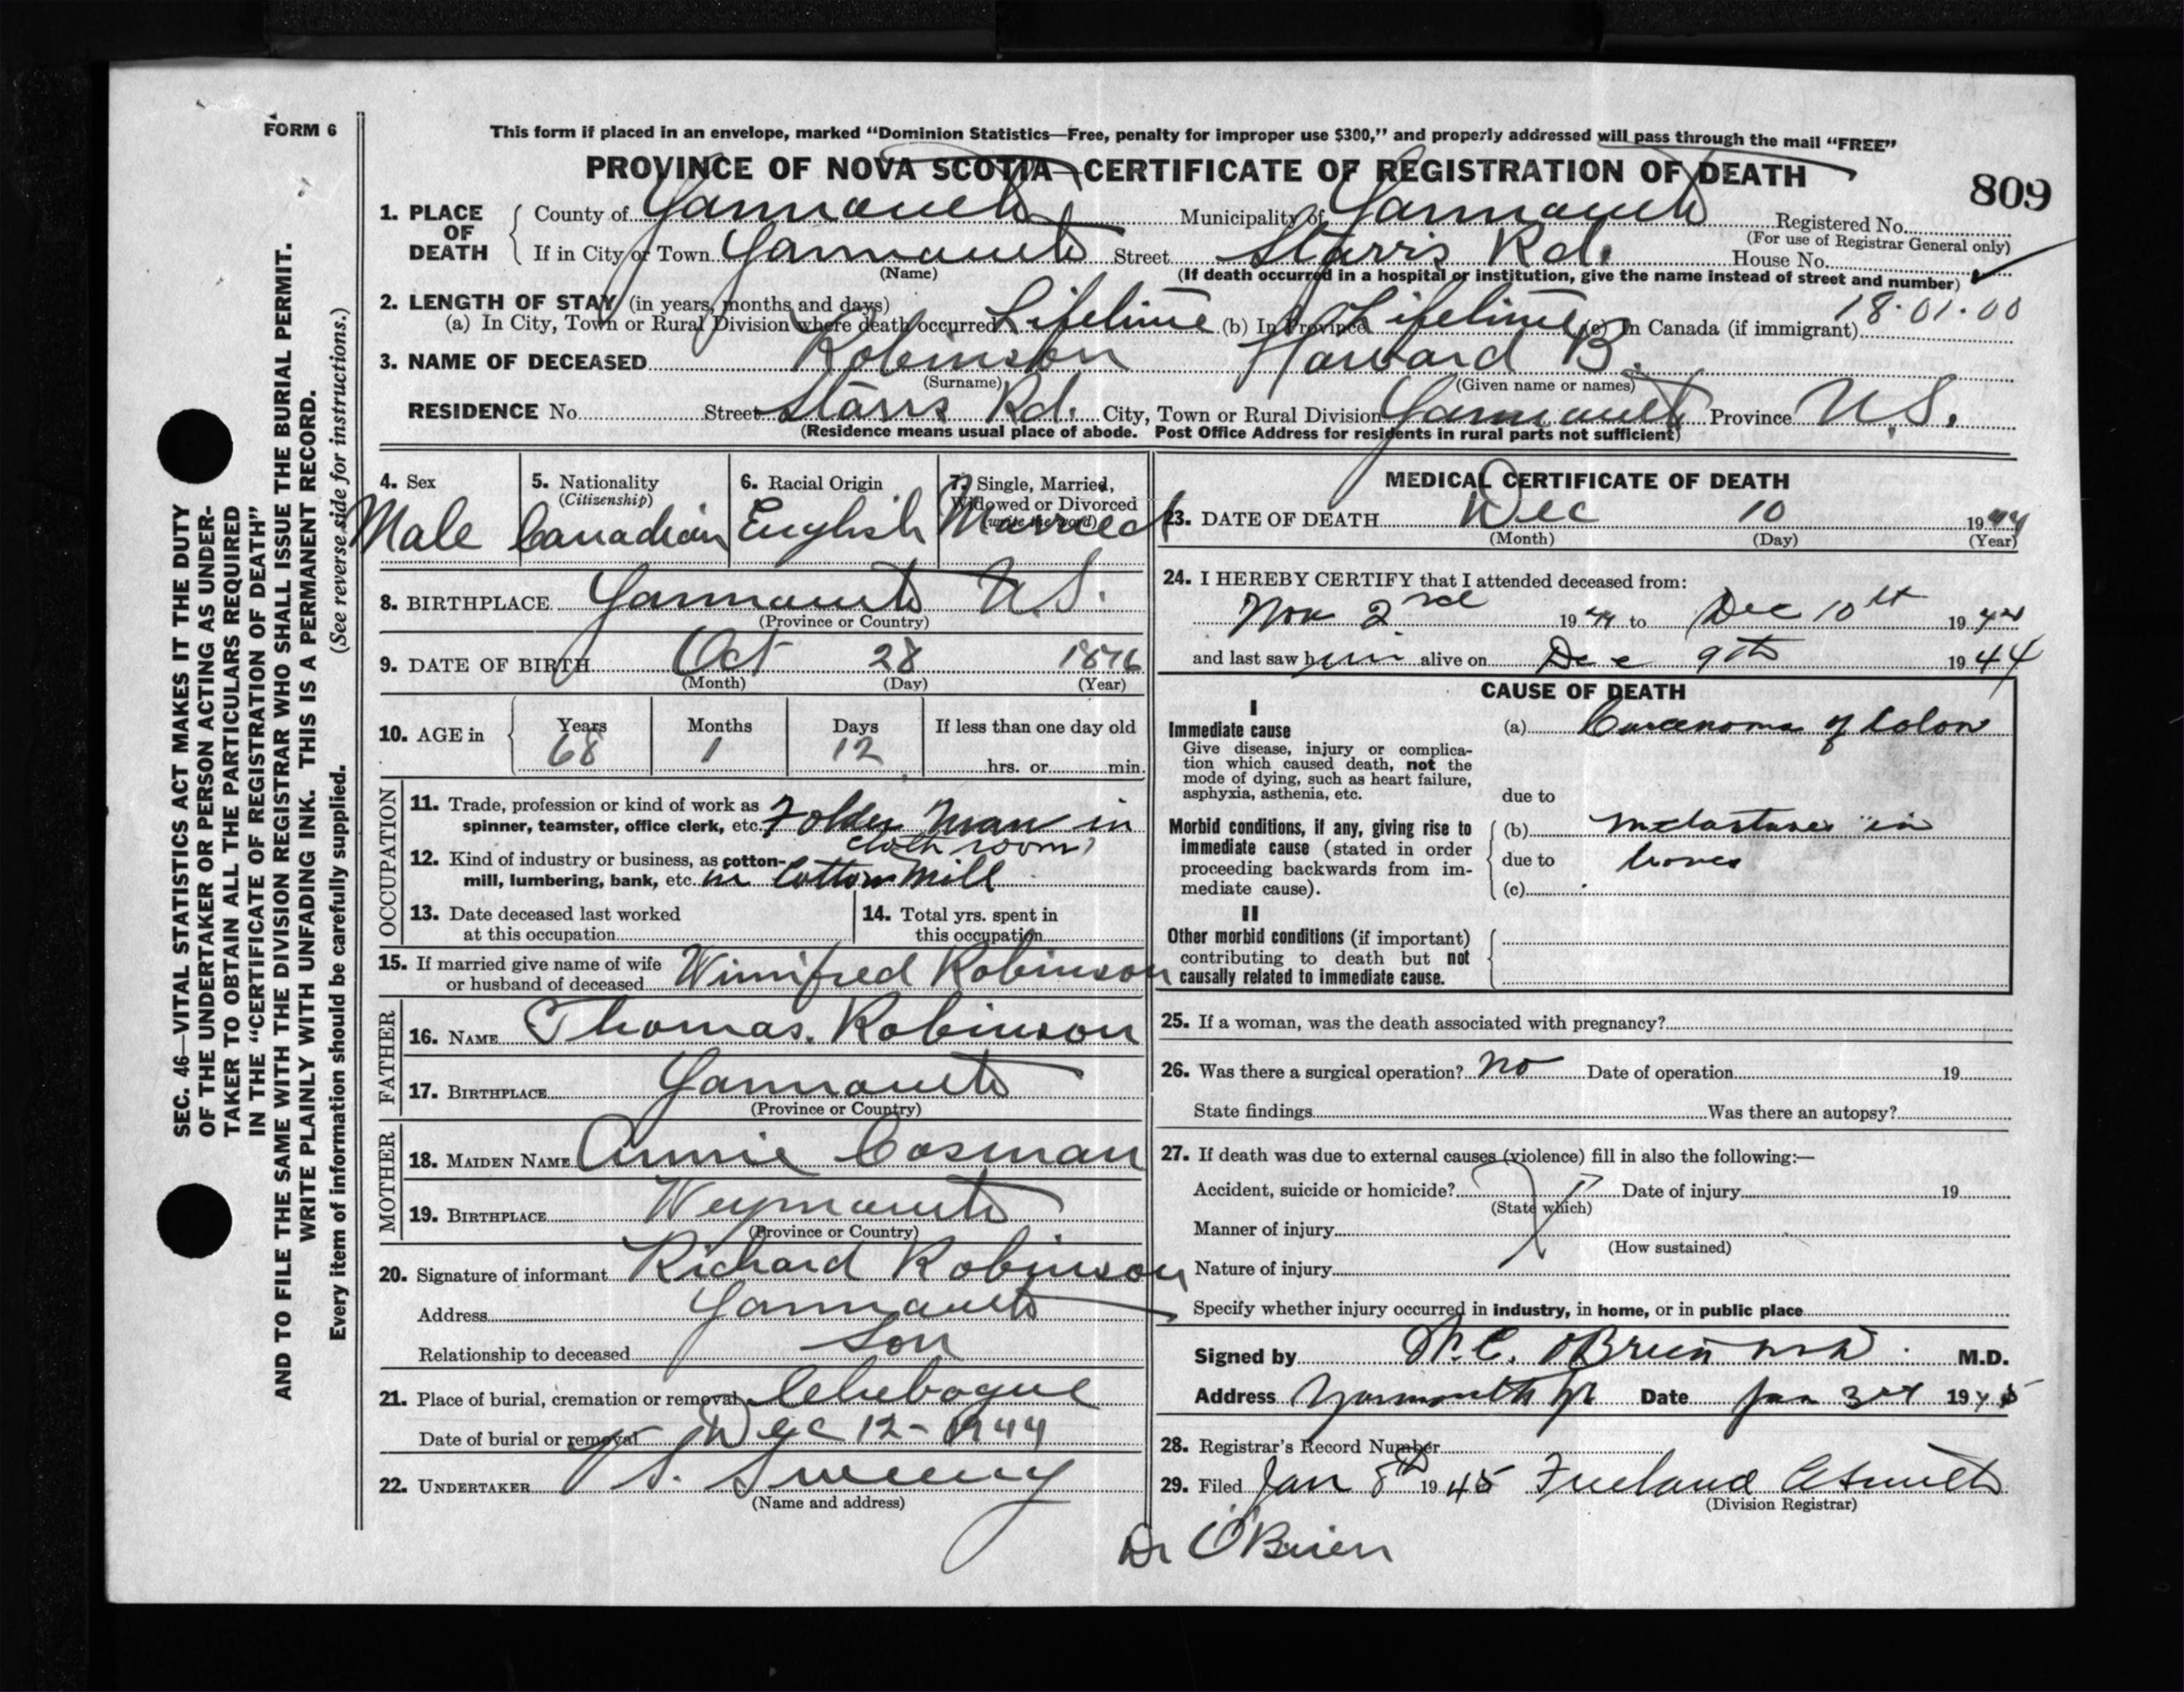 FORM 6
This form if placed in an envelope, marked “Dominion Statistics—Free, penalty for improper use $300,” and properly addressed will pass through the mail “FREE”
PROVINCE OF NOVA SCOTIA—CERTIFICATE OF REGISTRATION OF DEATH
809
1. PLACE OF DEATH
County of Yarmouth Municipality of Yarmouth Registered No.
(For use of Registrar General only)
If in City or Town Yarmouth Street Starrs Rd. House No.
(Name) (If death occurred in a hospital or institution, give the name instead of street and number)
2. LENGTH OF STAY (in years, months and days) 18·01·00
(a) In City, Town or Rural Division where death occurred Lifetime (b) In Province Lifetime (c) In Canada (if immigrant)
3. NAME OF DECEASED Robinson Harvard B.
(Surname) (Given name or names)
RESIDENCE No. Street Starrs Rd. City, Town or Rural Division Yarmouth Province N.S.
(Residence means usual place of abode. Post Office Address for residents in rural parts not sufficient)
4. Sex
Male
5. Nationality
(Citizenship)
Canadian
6. Racial Origin
English
7. Single, Married,
Widowed or Divorced
(write the word)
Married
8. BIRTHPLACE Yarmouth N.S.
(Province or Country)
9. DATE OF BIRTH Oct 28 1876
(Month) (Day) (Year)
10. AGE in Years Months Days If less than one day old
68 1 12 hrs. or min.
OCCUPATION
11. Trade, profession or kind of work as
spinner, teamster, office clerk, etc. Folder Man in
cloth room
12. Kind of industry or business, as cotton-
mill, lumbering, bank, etc. in Cotton Mill
13. Date deceased last worked
at this occupation
14. Total yrs. spent in
this occupation
15. If married give name of wife
or husband of deceased Winnifred Robinson
FATHER
16. NAME Thomas. Robinson
17. BIRTHPLACE Yarmouth
(Province or Country)
MOTHER
18. MAIDEN NAME Annie Cosman
19. BIRTHPLACE Weymouth
(Province or Country)
20. Signature of informant Richard Robinson
Address Yarmouth
Relationship to deceased Son
21. Place of burial, cremation or removal Chebogue
Date of burial or removal Dec 12 - 1944
22. UNDERTAKER V. S. Sweeny
(Name and address)
MEDICAL CERTIFICATE OF DEATH
23. DATE OF DEATH Dec 10 1944
(Month) (Day) (Year)
24. I HEREBY CERTIFY that I attended deceased from:
Nov 2nd 1944 to Dec 10th 1944
and last saw him alive on Dec 9th 1944
CAUSE OF DEATH
I
Immediate cause
Give disease, injury or complica-
tion which caused death, not the
mode of dying, such as heart failure,
asphyxia, asthenia, etc.
(a) Carcenoma of Colon
due to
Morbid conditions, if any, giving rise to
immediate cause (stated in order
proceeding backwards from im-
mediate cause).
(b) metastases in
due to bones
(c)
II
Other morbid conditions (if important)
contributing to death but not
causally related to immediate cause.
25. If a woman, was the death associated with pregnancy?
26. Was there a surgical operation? no Date of operation 19
State findings Was there an autopsy?
27. If death was due to external causes (violence) fill in also the following:—
Accident, suicide or homicide? Date of injury 19
(State which)
Manner of injury
(How sustained)
Nature of injury
Specify whether injury occurred in industry, in home, or in public place
Signed by W.C. O'Brien M.D.
Address Yarmouth Date Jan 3rd 1945
28. Registrar's Record Number
29. Filed Jan 8th 1945 Freeland A Smith
(Division Registrar)
Dr O'Brien
SEC. 46—VITAL STATISTICS ACT MAKES IT THE DUTY
OF THE UNDERTAKER OR PERSON ACTING AS UNDER-
TAKER TO OBTAIN ALL THE PARTICULARS REQUIRED
IN THE “CERTIFICATE OF REGISTRATION OF DEATH”
AND TO FILE THE SAME WITH THE DIVISION REGISTRAR WHO SHALL ISSUE THE BURIAL PERMIT.
WRITE PLAINLY WITH UNFADING INK. THIS IS A PERMANENT RECORD.
Every item of information should be carefully supplied. (See reverse side for instructions.)